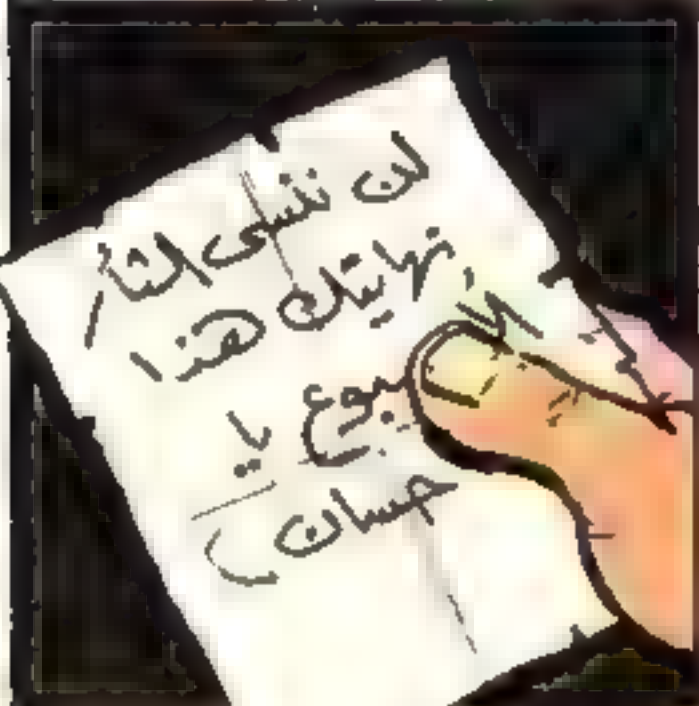 لن ننسى الثأر
نهايتك هذا
الأسبوع يا
حسان